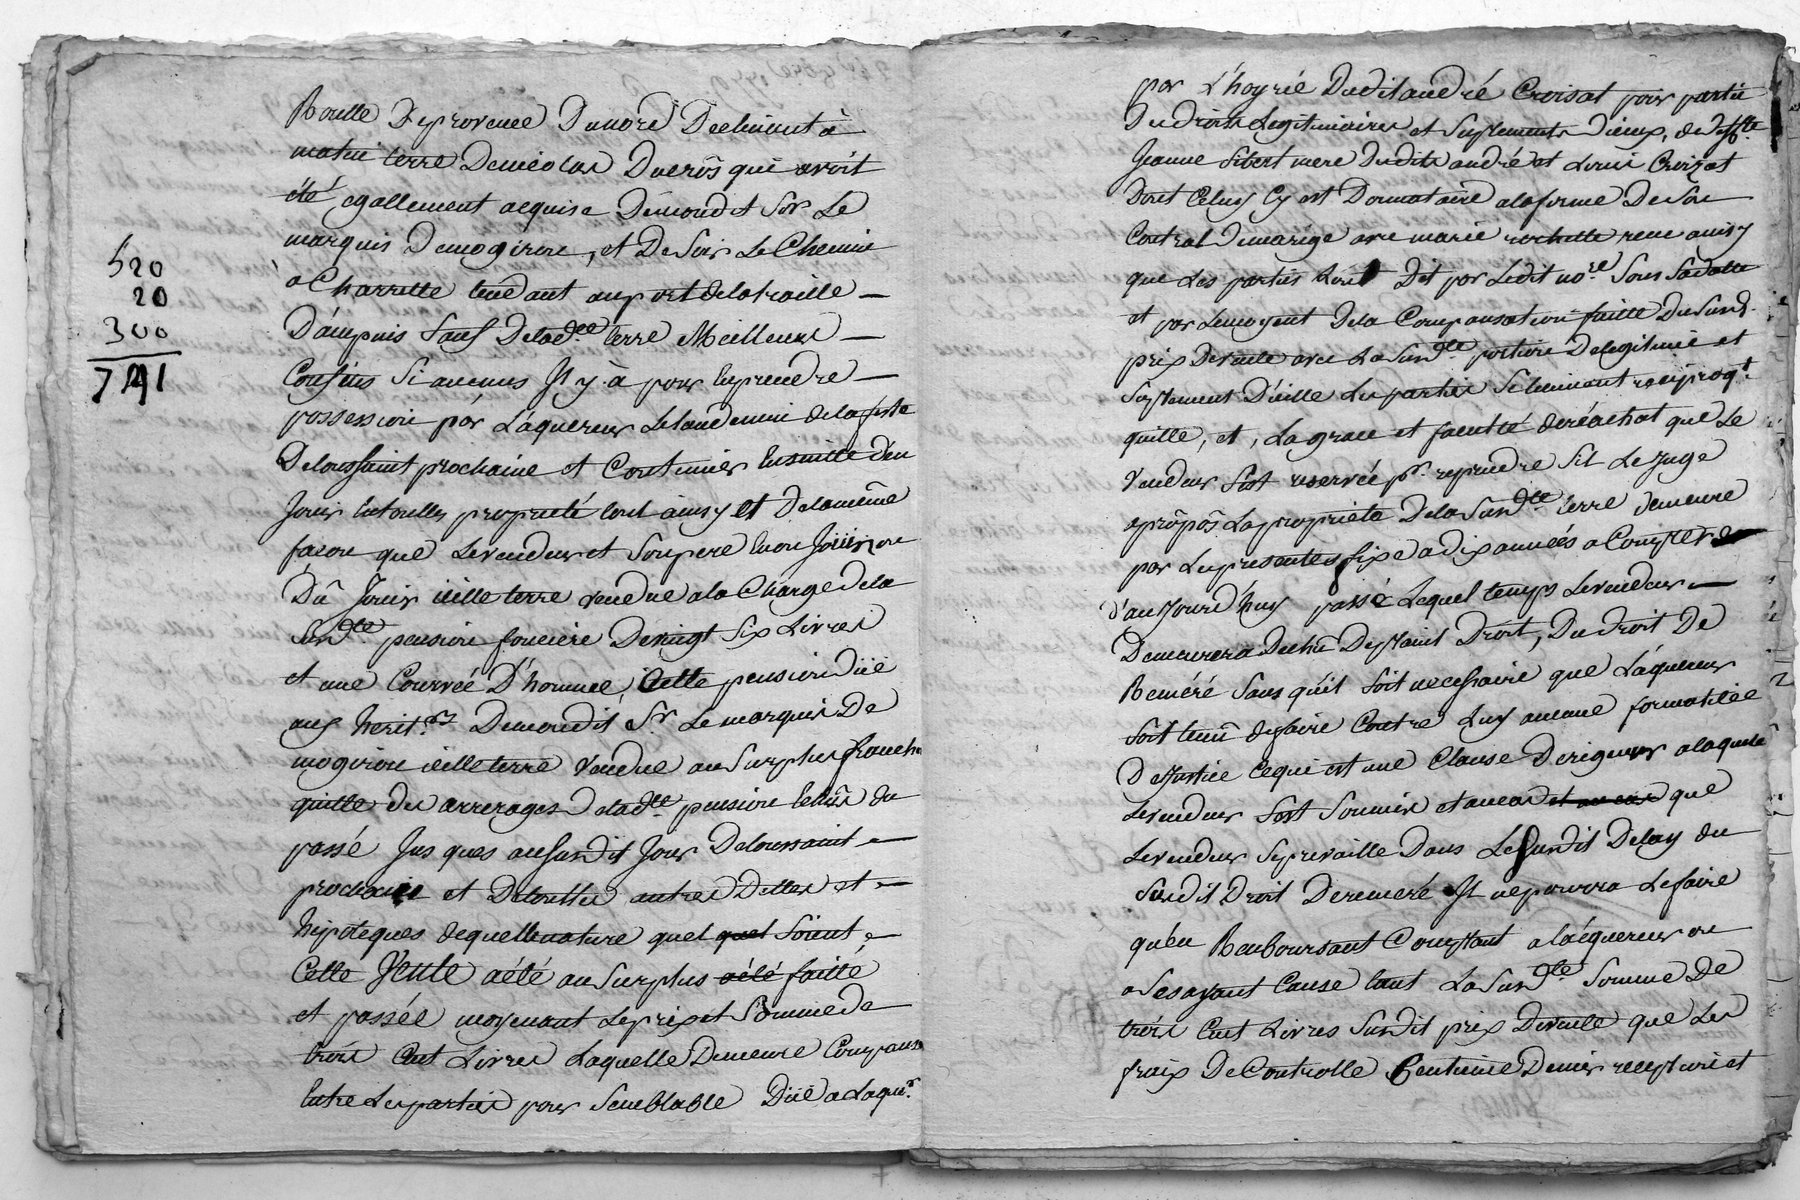 520
20
300
741
Roulle de provence du nord declinant à
matin terre de nicolas Ducros qui avoit
été egallement acquise dumond.t Sr. Le
marquis de mogiron, et de Soir Le Chemin
a Charrette tendant au port de la traille
D'ampuis Sauf de lad.te terre Meilleurs
Confins Si aucuns Il y à pour En prendre
possession pár L'áquereur Le landemain de la feste
De toussaint prochaine et Continuer Ensuitte d'en
Jouir En toutte proprieté tout áinsy et de la même
facon que Le vendeur et Son pere En on Joüi, ou
Dû Jouir icelle terre vendue a la Charge de la
Susd.te pension fonciere de vingt Six Livres
et une Courveé D'homme, icelle pension düe
aux herit.rs Dumondit Sr. Le marquis De
mogiron icelle terre vendue au Surplus franche
quitte des arrerages de lad.te pension Echûs du
passé Jusques au Susdit Jour De toussaint
prochain et de touttes autres Dettes et
hipoteques de quelle nature quel quel Soient
Cette Vente a été au Surplus a été faitté
et passée moyenant Le prix et Somme de
trois Cent Livres Laquelle Demeure Compansé
Entre Les parties pour Semblable Düe a Laqur.
par L'hoyrie Dudit andré Croisat pour partie
Des droits Legitimaires et Suplements d'iceux, de deffte
Jeanne Sibert mere Desdits andré et Louis Croizat
Dont Celuy Cy est Donnataire a la forme De Son
Contrat de marige avec marie rochette recu ainsy
que Les parties L'ont Dit par Ledit no.re Sous Sa datte
et par Le moyent de la Compansation faitte du Susd.
prix de vente avec La Susd.te portion De legitime et
Suplement D'icelle Les parties Se tiennent reciproqt.
quitte, et, La grace et faculté de réachat que Le
Vendeur S'est reservée pr. reprendre S'il Le juge
apropôs La proprieté De la Susd.te terre demeure
par Les presentes fixe a dix années a Compter
d'aujourd'huy passé Lequel temps Le vendeur
Demeurera Dechû De plaint Droit, Du droit De
Reméré Sans qu'il Soit necessaire que L'áquereur
Soit tenû de faire Contre Luy aucune formalitée
De Justice Ce qui est une Clause De rigueur a laquele
Le vendeur S'est Soumis et au cas et au cas que
Le vendeur Se prevaille Dans Le Susdit Delay du
Susdit Droit De remeré Il ne pourra Le faire
qu'en Ranboursant Comptant a l'aéquereur ou
a Ses ayant Cause tant La Susd.te Somme De
trois Cent Livres Susdit prix De vente que Les
fraix De Controlle Centieme Denier reception et